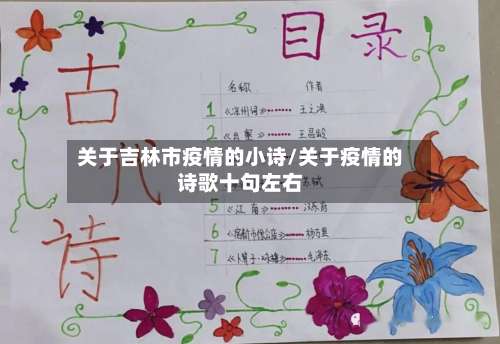 目录
古代诗
名称 作者
1 《凉州词》······· 王之涣
2 《出塞》······· 王昌龄
关于吉林市疫情的小诗/关于疫情的
诗歌十句左右
苏轼
5 《江
6 《宿新市徐公店》······ 杨万里
7 《卜算子·咏梅》······ 毛泽东